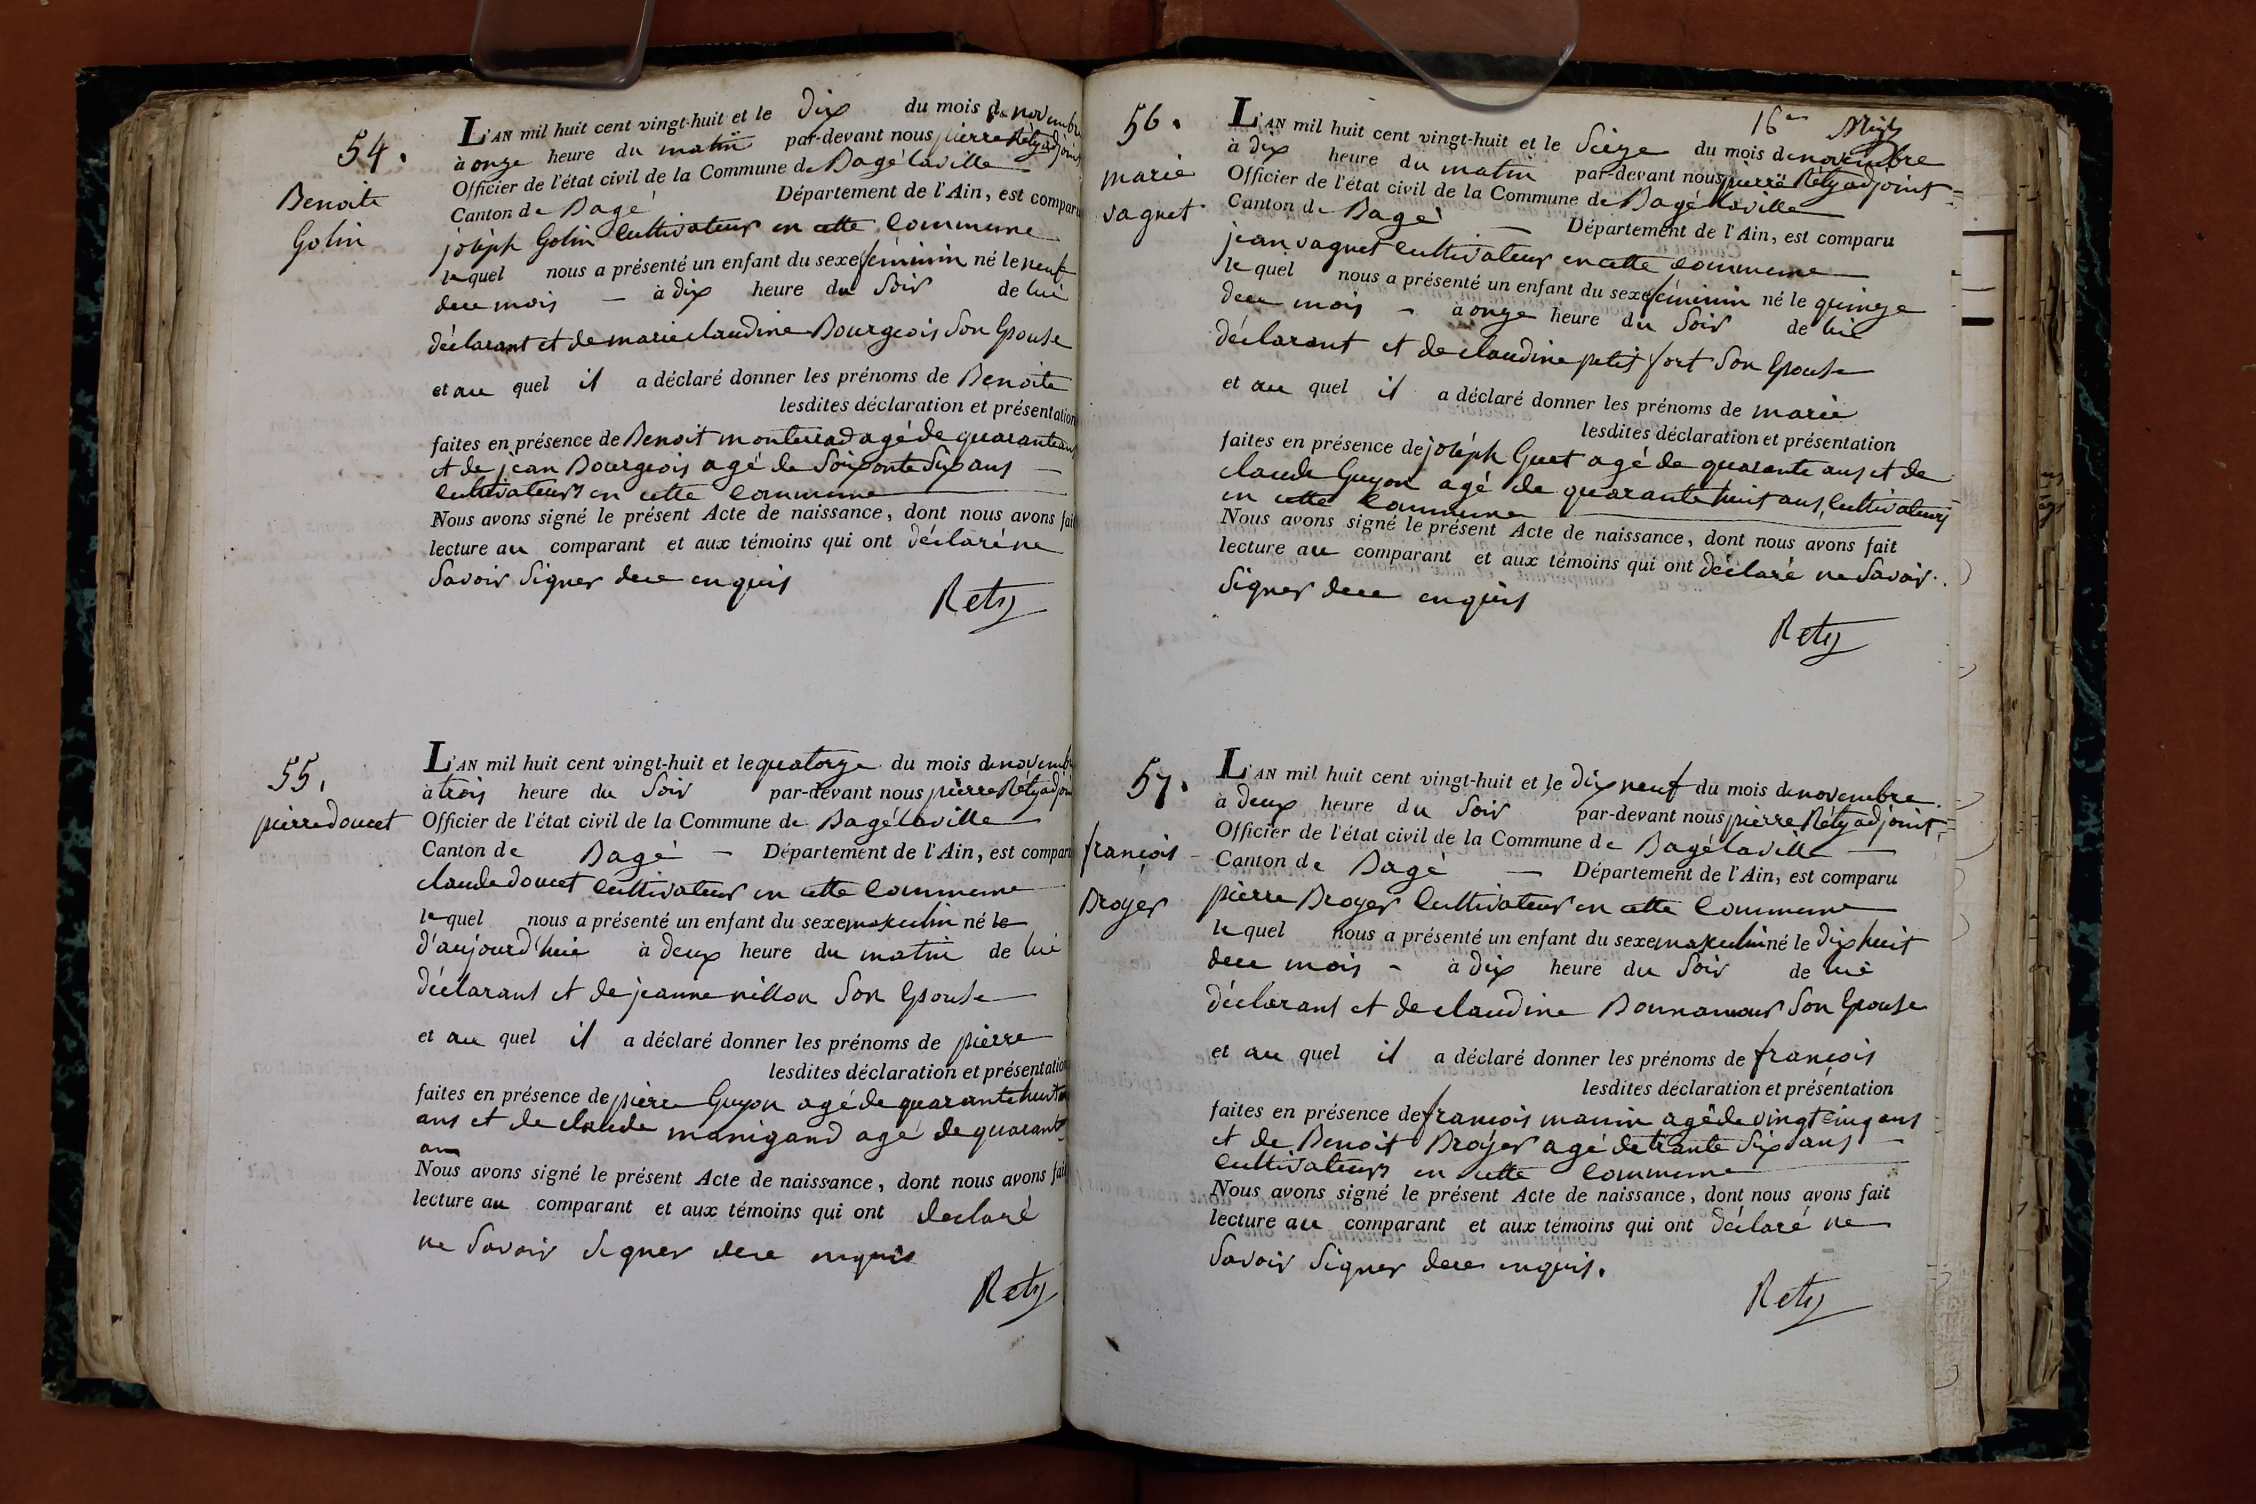 54.
Benoite
Golin
L'AN mil huit cent vingt-huit et le Dix du mois de novembre
à onze heure du matin par-devant nous pierre Réty adjoint
Officier de l'état civil de la Commune de Bagé la ville
Canton de Bagé Département de l'Ain, est comparu
joséph Golin Cultivateur en cette Commune
le quel nous a présenté un enfant du sexe féminin né le neuf
du mois — à dix heure du Soir de lui
déclarant et de marie claudine Bourgeois Son Epouse
et au quel il a déclaré donner les prénoms de Benoite
lesdites déclaration et présentation
faites en présence de Benoit agé de quarante ans
et de jean Bourgeois agé de Soixante Six ans —
Cultivateurs en cette Commune
Nous avons signé le présent Acte de naissance, dont nous avons fait
lecture au comparant et aux témoins qui ont déclaré ne
Savoir Signer de ce enquis
Rety
55.
pierre doucet
L'AN mil huit cent vingt-huit et le quatorze du mois de novembre
à trois heure du Soir par-devant nous pierre Réty adjoint
Officier de l'état civil de la Commune de Bagé la ville
Canton de Bagé — Département de l'Ain, est comparu
claude doucet Cultivateur en cette Commune
le quel nous a présenté un enfant du sexe masculin né le
d'aujourd'hui à deux heure du matin de lui
déclarant et de jeanne nillon Son Epouse
et au quel il a déclaré donner les prénoms de pierre
lesdites déclaration et présentation
faites en présence de pierre Guyon agé de quarante huit
ans et de claude manigand agé de quarante
ans
Nous avons signé le présent Acte de naissance, dont nous avons fait
lecture au comparant et aux témoins qui ont declaré
ne Savoir Signer de ce enquis
Rety
16e
56.
marie
vaguet
L'AN mil huit cent vingt-huit et le Seize du mois de novembre
à dix heure du matin par-devant nous pierre Réty adjoint
Officier de l'état civil de la Commune de Bagé la ville
Canton de Bagé — Département de l'Ain, est comparu
jean vaguet Cultivateur en cette Commune
le quel nous a présenté un enfant du sexe féminin né le quinze
du mois — à onze heure du Soir de lui
déclarant et de claudine petit fort Son Epouse
et au quel il a déclaré donner les prénoms de marie
lesdites déclaration et présentation
faites en présence de joséph Guet agé de quarante ans et de
claude Guyon agé de quarante huit ans, Cultivateurs
en cette Commune
Nous avons signé le présent Acte de naissance, dont nous avons fait
lecture au comparant et aux témoins qui ont déclaré ne Savoir
Signer de ce enquis
Rety
57.
françois
Broyer
L'AN mil huit cent vingt-huit et le dix neuf du mois de novembre
à deux heure du Soir par-devant nous pierre Réty adjoint
Officier de l'état civil de la Commune de Bagé la ville
Canton de Bagé — Département de l'Ain, est comparu
pierre Broyer Cultivateur en cette Commune
le quel nous a présenté un enfant du sexe masculin né le dix huit
du mois — à dix heure du Soir de lui
déclarant et de claudine Bonnamour Son Epouse
et au quel il a déclaré donner les prénoms de françois
lesdites déclaration et présentation
faites en présence de françois manin agé de vingt cinq ans
et de Benoit Broyer agé de trante Six ans —
Cultivateurs en cette Commune
Nous avons signé le présent Acte de naissance, dont nous avons fait
lecture au comparant et aux témoins qui ont déclaré ne
Savoir Signer de ce enquis.
Rety